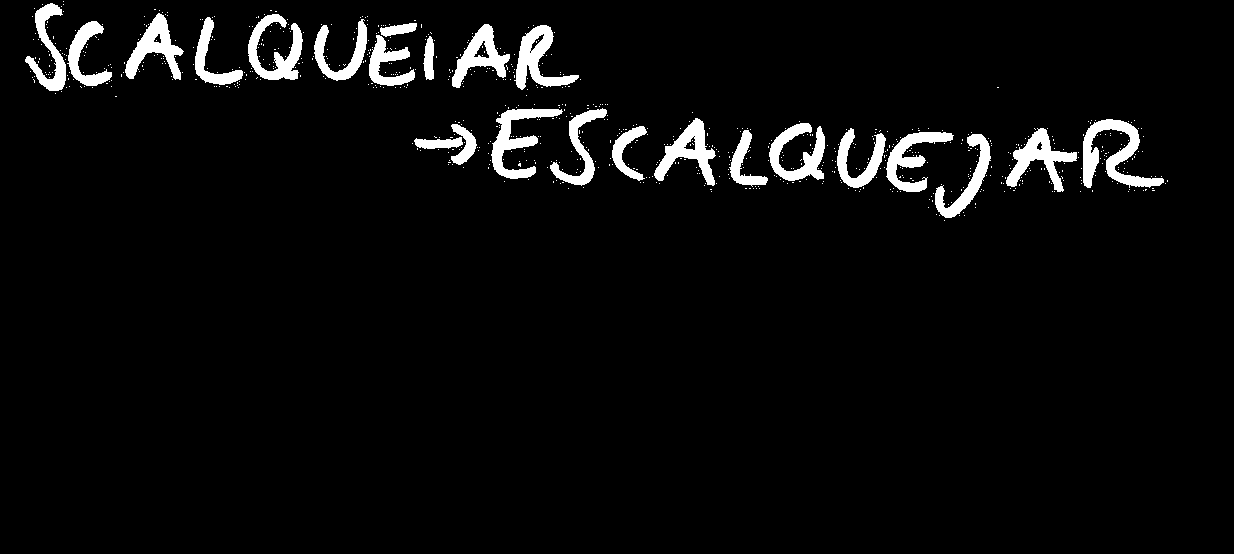 SCALQUEIAR
→ ESCALQUEJAR